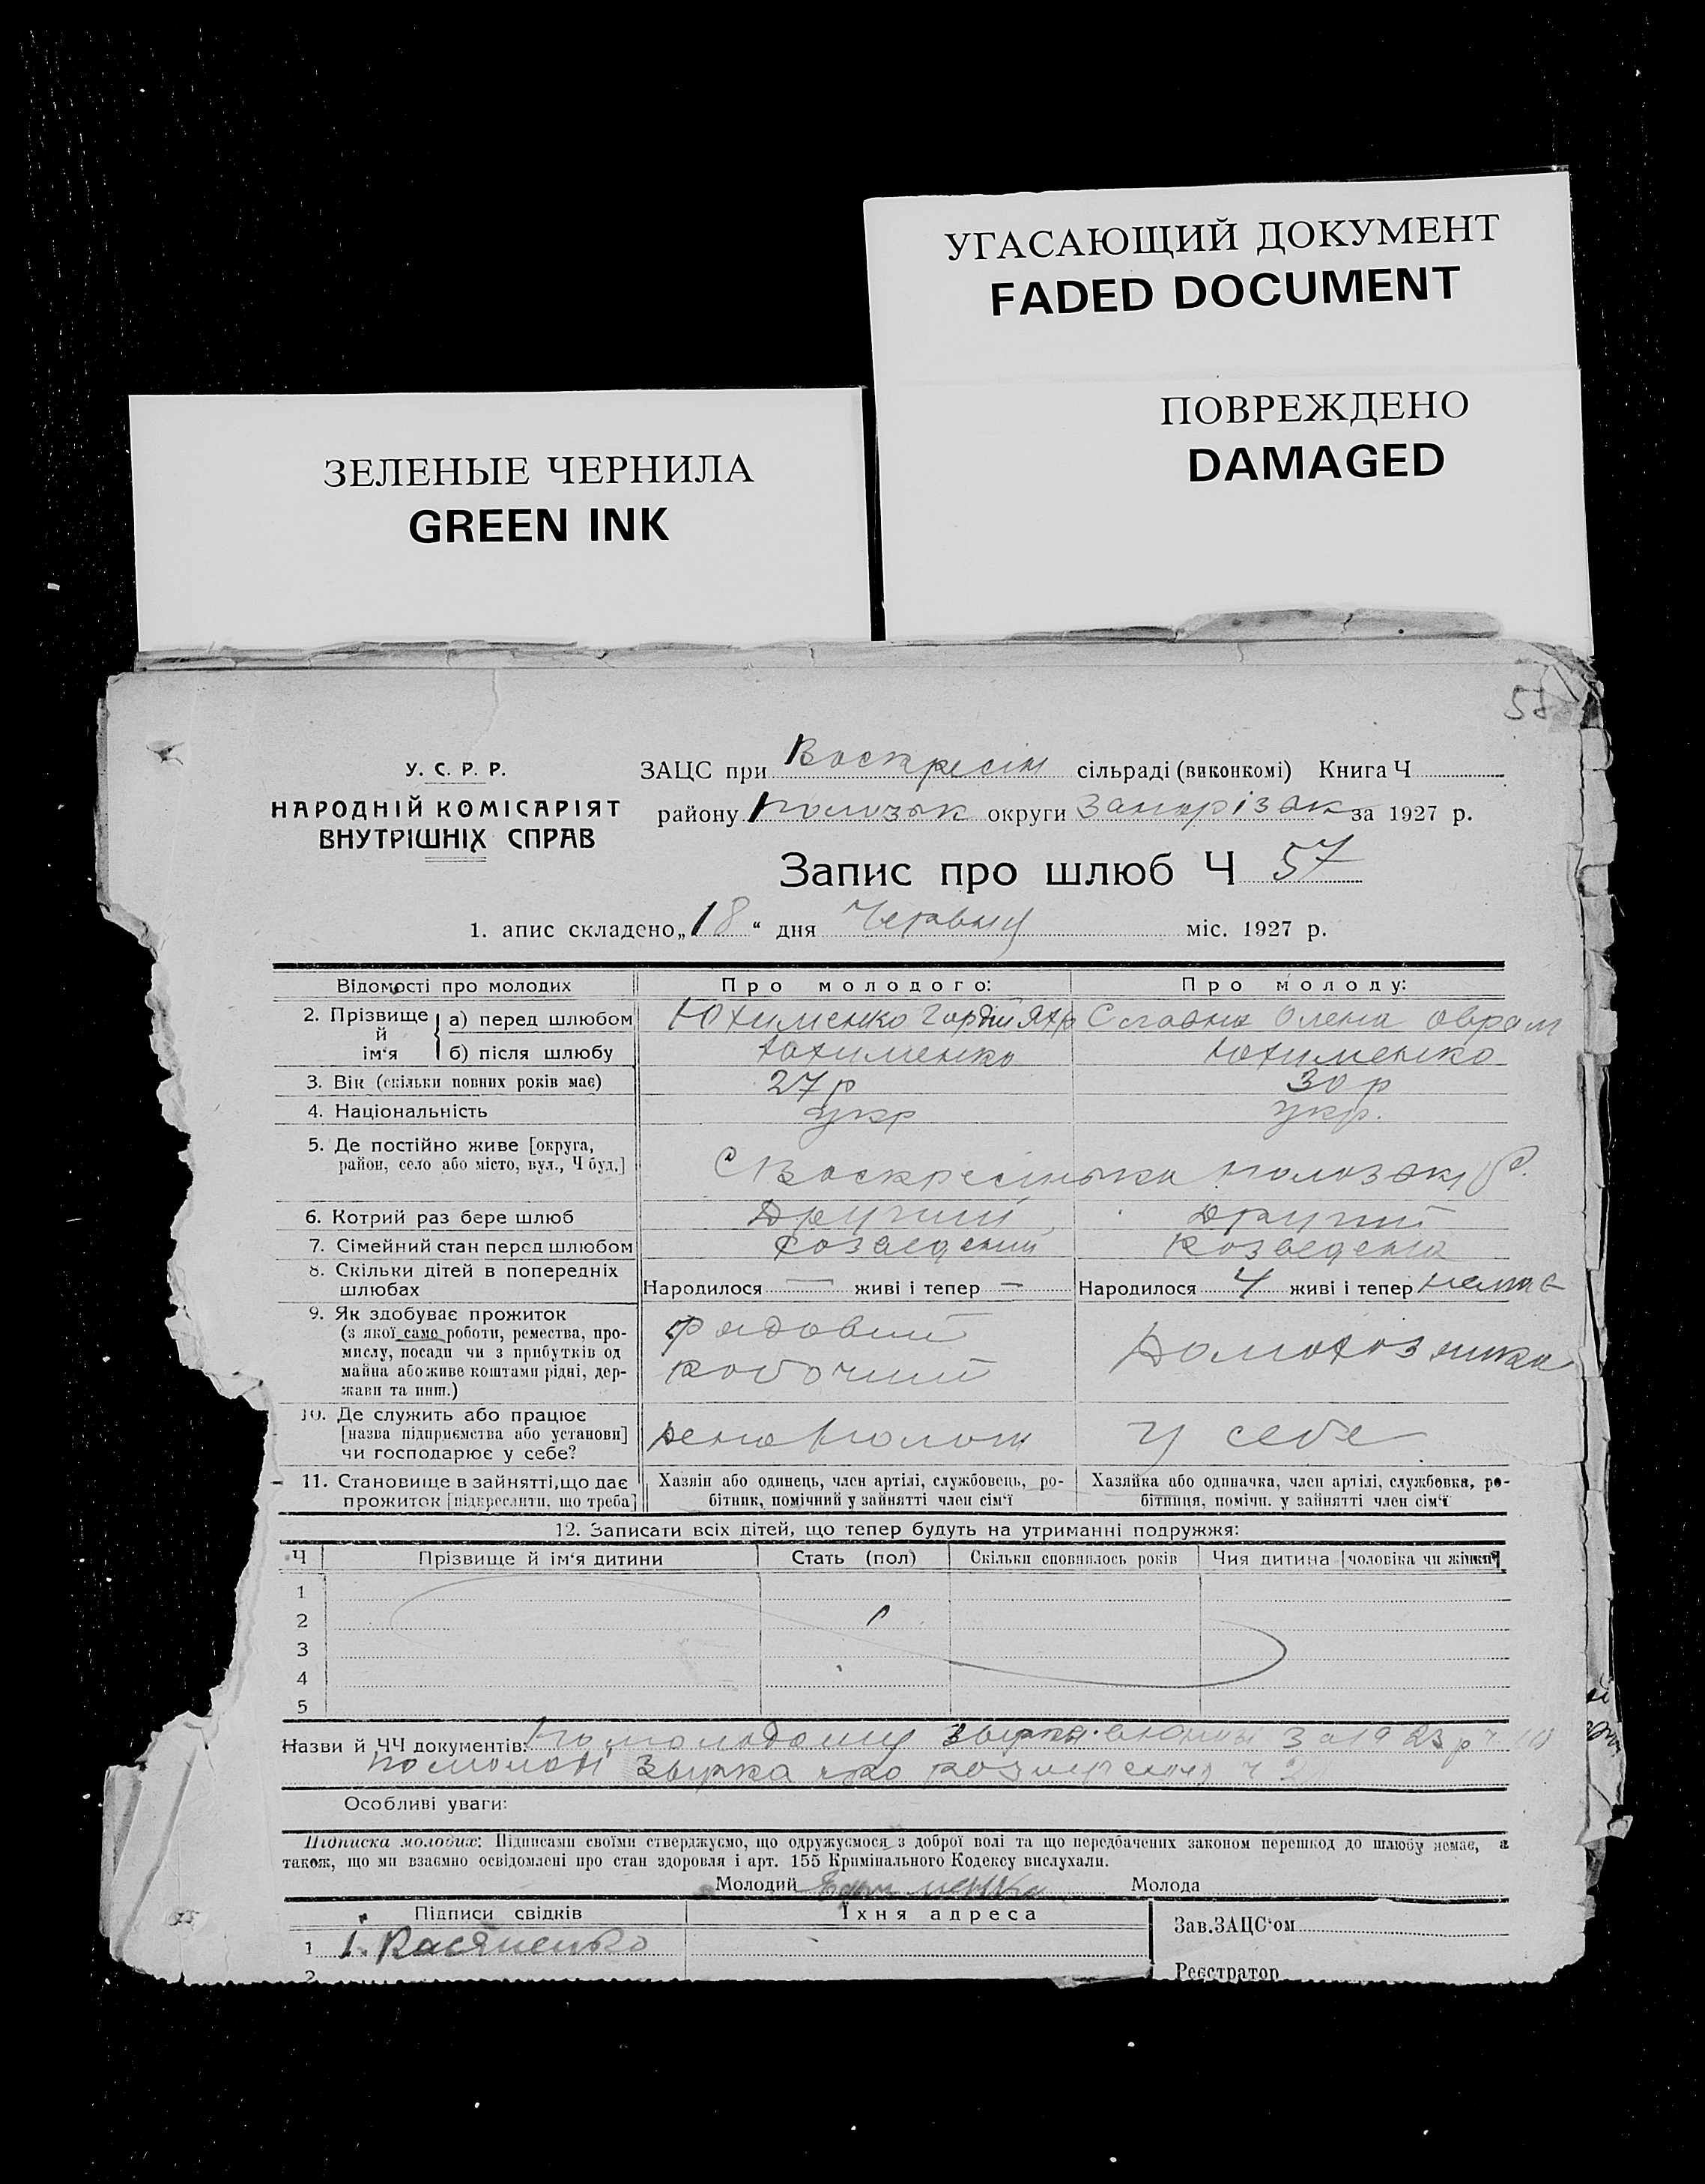 УГАСАЮЩИЙ ДОКУМЕНТ
FADED DOCUMENT
ПОВРЕЖДЕНО
DAMAGED
ЗЕЛЕНЫЕ ЧЕРНИЛА
GREEN INK
У. С. Р. Р.
НАРОДНІЙ КОМІСАРІЯТ
ВНУТРІШНІХ СПРАВ
ЗАЦС при Воскресін сільраді (виконкомі) Книга Ч
району Пологзьк округи Запорізьк за 1927 р.
Запис про шлюб Ч 57
1. апис складено „18“ дня Червня міс. 1927 р.
Відомості про молодих Про молодого: Про молоду:
2. Прізвище й ім‘я а) перед шлюбом Юхименко Гордій Славна Олена Аврам
б) після шлюбу Юхименко Юхименко
3. Вік (скільки повних років має) 27 р 30 р
4. Національність укр укр.
5. Де постійно живе [округа,
район, село або місто, вул., Ч буд.] С Воскресінька
6. Котрий раз бере шлюб Другий Другий
7. Сімейний стан перед шлюбом Розведений Розведена
8. Скільки дітей в попередніх
шлюбах Народилося — живі і тепер — Народилося 4 живі і тепер немає
9. Як здобуває прожиток
(з якої саме роботи, ремества, про-
мислу, посади чи з прибутків од
майна або живе коштами рідні, дер-
жави та инш.)
рядовий
робочий
10. Де служить або працює
[назва підприємства або установи]
чи господарює у себе?
Депо Пологи у себе
11. Становище в зайнятті, що дає
прожиток [підкреслити, що треба]
Хазяїн або одинець, член артілі, службовець, ро-
бітник, помічний у зайнятті член сім‘ї
Хазяйка або одиначка, член артілі, службовка, ро-
бітниця, помічн. у зайнятті член сім‘ї
12. Записати всіх дітей, що тепер будуть на утриманні подружжя:
Ч Прізвище й ім‘я дитини Стать (пол) Скільки сповнилось років Чия дитина [чоловіка чи жінки]
1
2
3
4
5
Назви й ЧЧ документів: По молодому за 1923 р
По молодій
Особливі уваги:
Підписка молодих: Підписами своїми стверджуємо, що одружуємося з доброї волі та що передбачених законом перешкод до шлюбу немає, а
також, що ми взаємно освідомлені про стан здоровля і арт. 155 Кримінального Кодексу вислухали.
Молодий Молода
Підписи свідків Їхня адреса Зав. ЗАЦС‘ом
1 І. Касяненко
2 Реєстратор